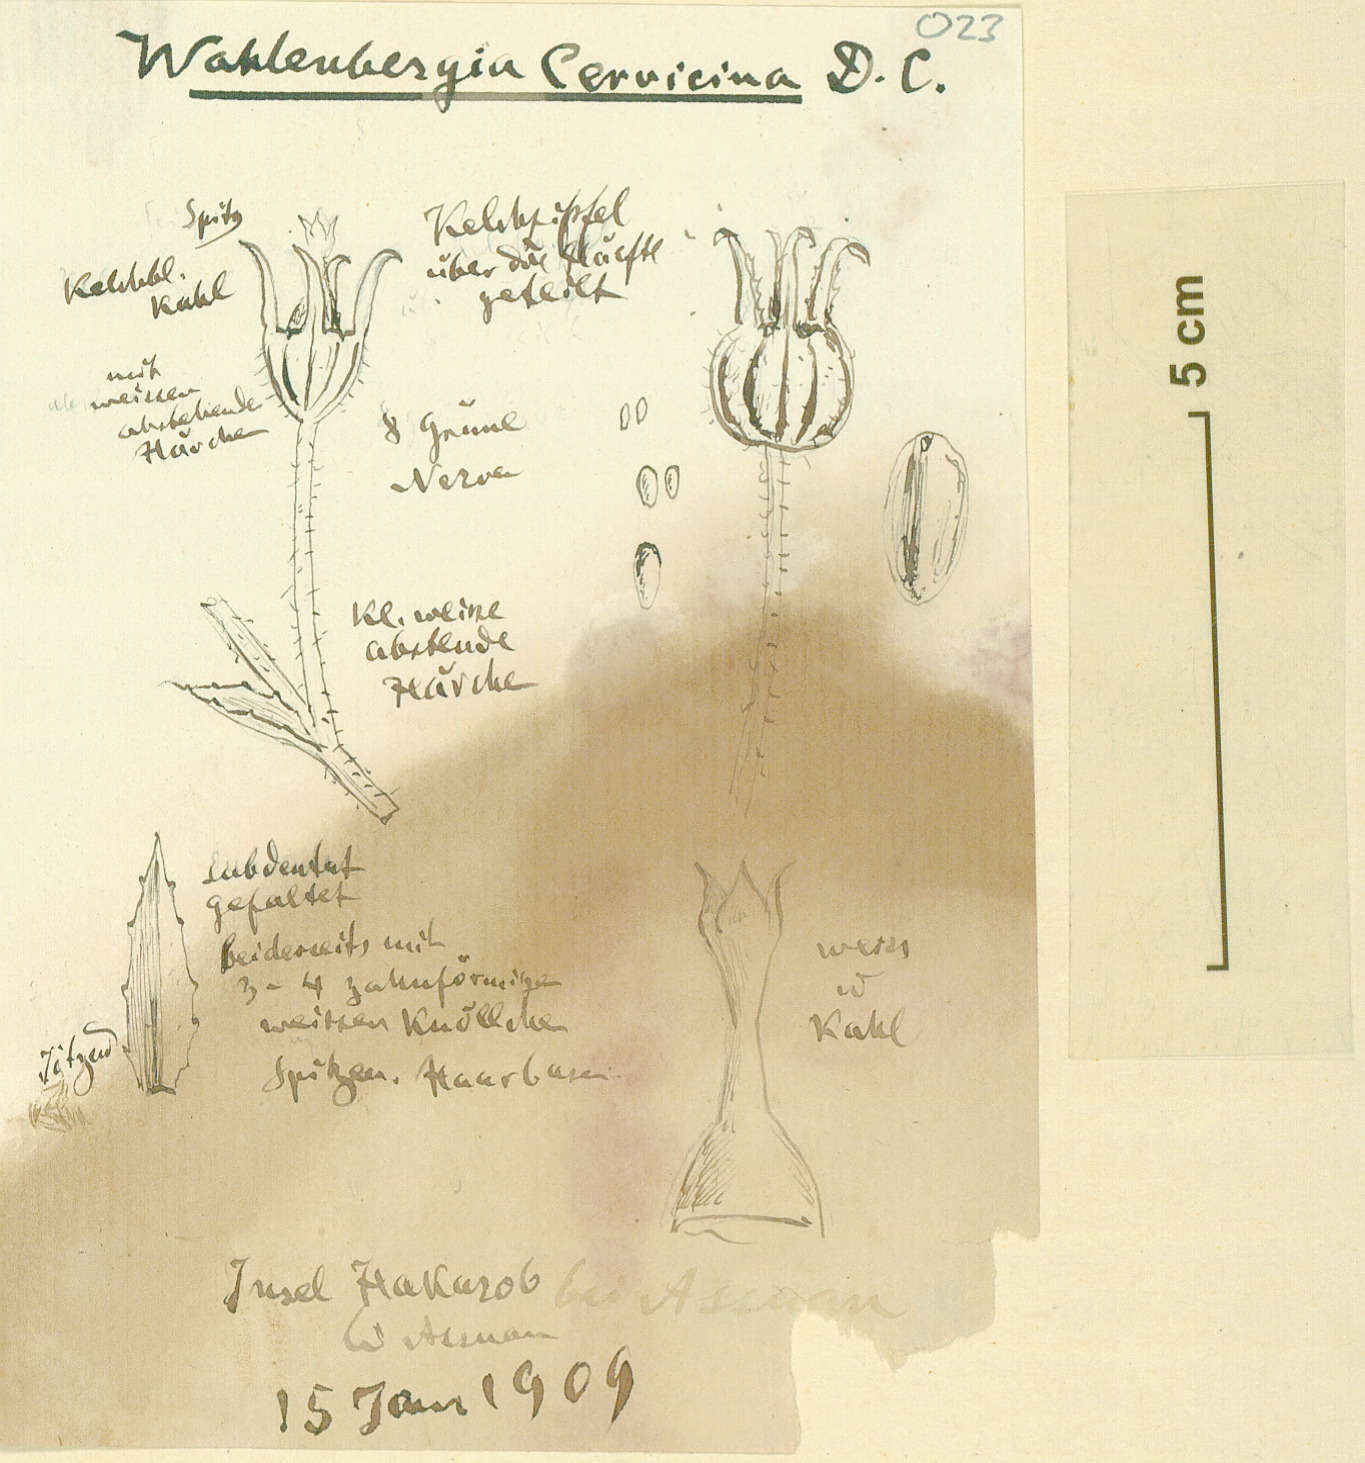 023
Wahlenbergia Cervicina D.C.
Spitz
Kelchbl.
Kahl
Kelchzipfel
über die Hälfte
geteilt
mit
weissen
abstehende
Härche
8 Grüne
Nerve
Kl. weisse
abstende
Härche
Subdentat
gefaltet
beiderseits mit
3-4 zahnförmige
weissen Knöllche
Spitzen. Haarbasen
Sitzend
weiss
u
Kahl
Insel Hakarob bei Assuan
bei Assuan
15 Jan 1909
5 cm